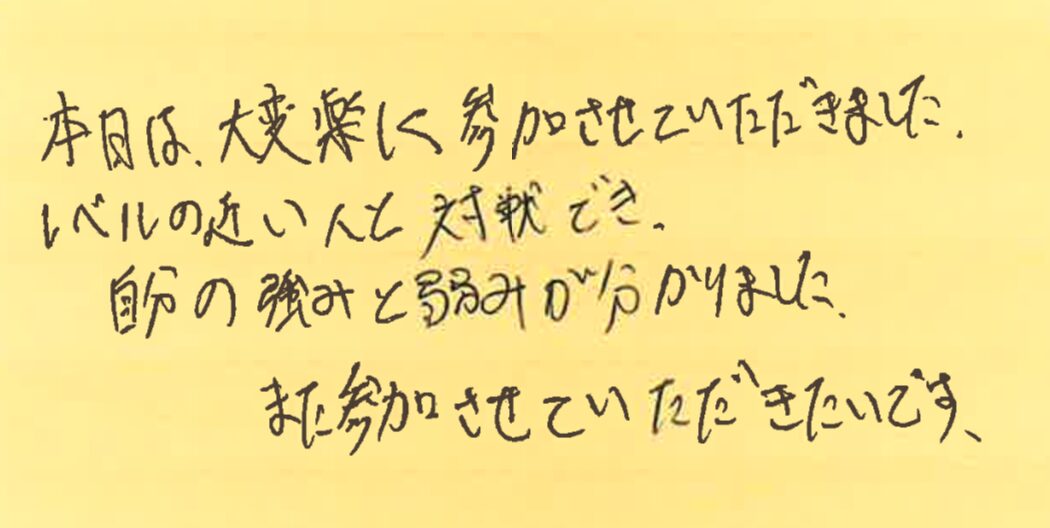 本日は、大変楽しく参加させていただきました。
レベルの近い人と対戦でき、
自分の強みと弱みが分かりました。
また参加させていただきたいです。